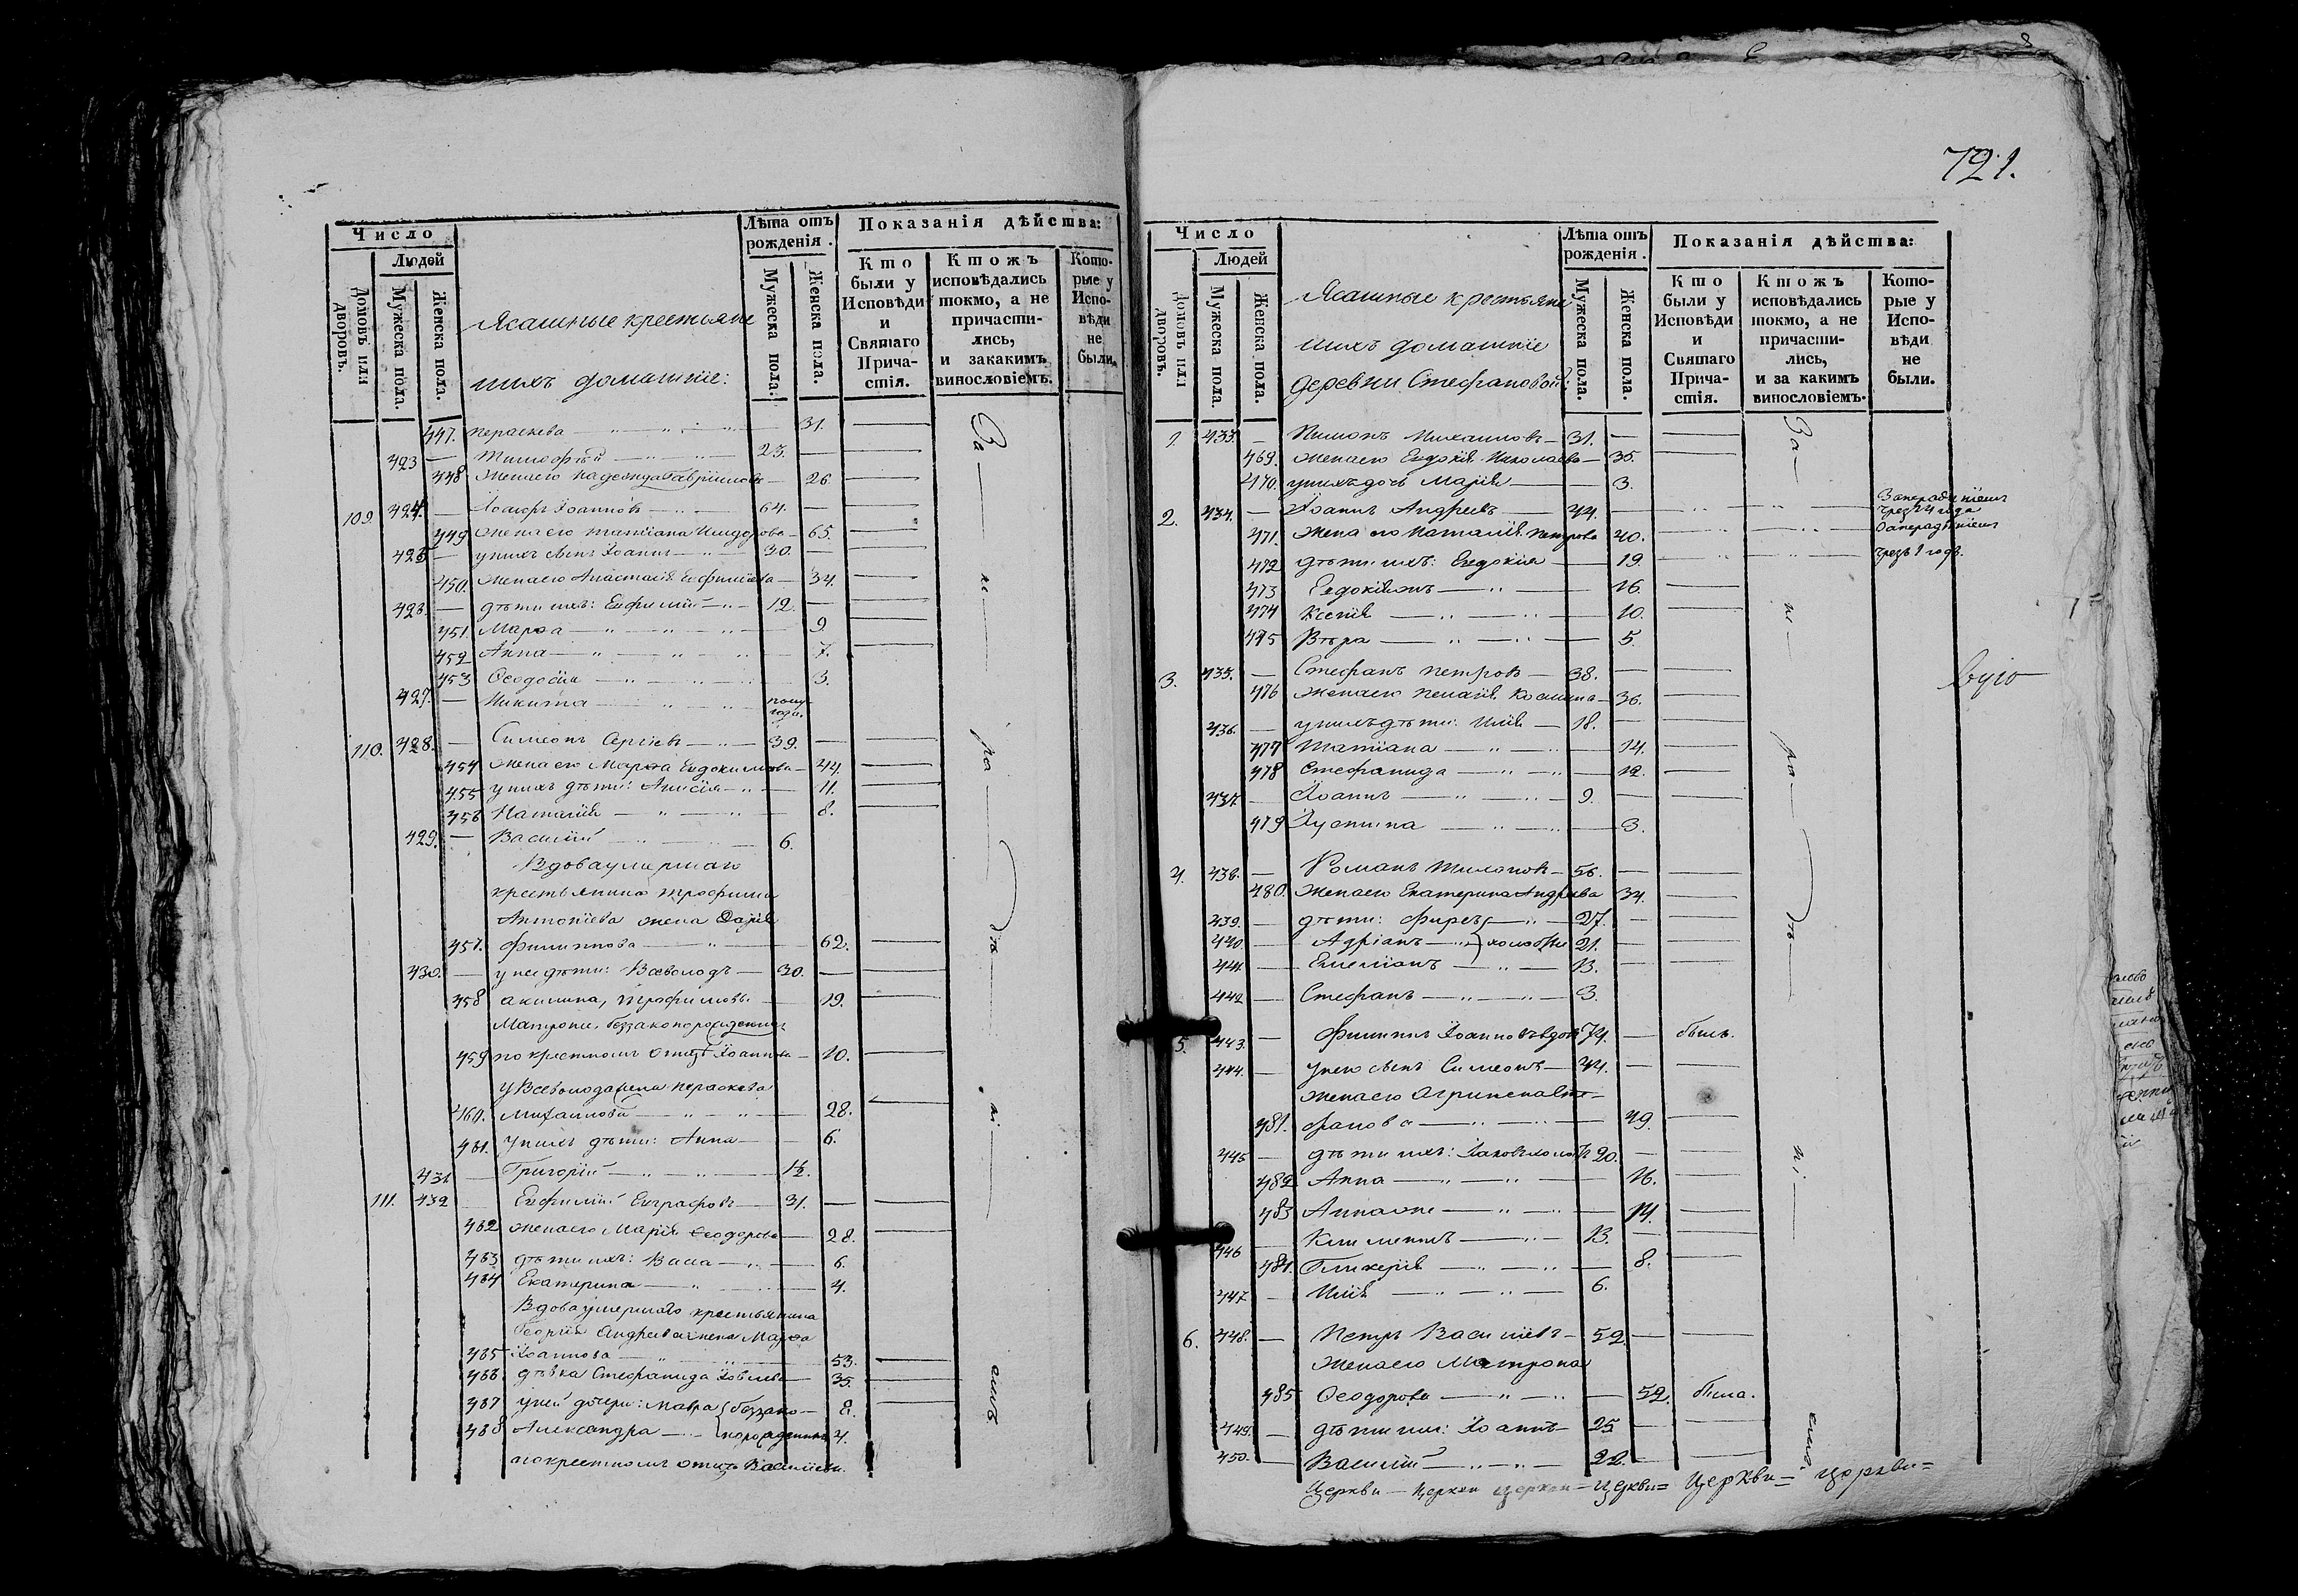 Число
Людей
Домовъ или дворовъ.
Мужеска пола.
Женска пола.
Ясашные крестьяне
ихъ домашнiе:
Лѣта отъ рожденiя.
Мужеска пола.
Женска пола.
Показанiя дѣйства:
Кто были у Исповѣди и Святаго Прича-стiя.
Ктожъ исповѣдались токмо, а не причасти-лись, и закакимъ винословiемъ.
Кото-рые у Испо-вѣди не были.
447. Пераскева 31.
423 Тимофѣй 23.
448 Жена его Надежда Гаврiилова 26.
109. 424. Iоаннъ 64.
449 Жена его Татiана 65.
425 у нихъ сынъ Iоаннъ 30.
450. Жена его Анастасiя 34.
дѣти ихъ: Евфимiй 12.
451. Марѳа 9.
452 Анна 7.
453 Ѳеодосiя 3.
427. Никита полу-года.
110. 428. Симеонъ Сергiевъ 39.
454 Жена его Марѳа Евдокимова 44.
455 у нихъ дѣти: Анисiя 11.
456 Наталiя 8.
429. Василiй 6.
Вдова умершаго
крестьянина Трофима
Антонiева жена Дарiя
457. Филиппова 62.
430. у нея дѣти: Всеволодъ 30.
458 Акилина, 19.
Матроны, беззаконорожденная
459 по крестномъ отцѣ Iоаннова 10.
У Всеволода жена Пераскева
460. Михаилова 28.
461. у нихъ дѣти: Анна 6.
431 Григорiй
111. 432 Евфимiй Евграфовъ 31.
462 Жена его Марiя Ѳеодорова 28.
463 дѣти ихъ: Васса 6.
464 Екатерина 4.
Вдова умершаго крестьянина
Георгiя Андреева жена Марѳа
465 Iоаннова 53.
466 дѣвка Стефанида 35.
467 у ней дочери: Мавра беззако- 8.
468 Александра норожденныя 4.
по крестномъ отцѣ Василiевы.
За не ра дѣ нi емъ
721.
Число
Людей
Домовъ или дворовъ.
Мужеска пола.
Женска пола.
Ясашные крестьяне
ихъ домашнiе
деревни Стефановой:
Лѣта отъ рожденiя.
Мужеска пола.
Женска пола.
Показанiя дѣйства:
Кто были у Исповѣди и Святаго Прича-стiя.
Ктожъ исповѣдались токмо, а не причасти-лись, и за какимъ винословiемъ.
Кото-рые у Испо-вѣди не были.
1. 433. Пименъ Михаиловъ 31.
469. Жена его Евдокiя Николаева 35.
470. у нихъ дочь Марiя 3.
2. 434. Iоаннъ Андреевъ 44. Занерадѣнiемъ
471. Жена его Наталiя Петрова 40. Занерадѣнiемъ
472 дѣти ихъ: Евдокiя 19. чрезъ 1 годъ.
473 Евдокiя 16.
474 Ксенiя 10.
475 Вѣра 5.
3. 435. Стефанъ Петровъ 38.
476 Жена его Пелагiя 36.
436. у нихъ дѣти: Илiя 18.
477 Татiана 14.
478 Стефанида 12.
437. Iоаннъ 9.
479 Iустина 3.
4. 438. Романъ 56.
480. Жена его Екатерина Андреева 34.
439. дѣти: Фирсъ 27.
440. Адрiанъ холосты 21.
441. Емелiанъ 13.
442 Стефанъ 3.
5. 443. Филиппъ Iоанновъ вдовъ 74. былъ.
444. у него сынъ Симеонъ 44.
Жена его Агрипена Сте-
481. фанова 49.
445 дѣти ихъ: Iаковъ холостъ 20.
482 Анна 16.
483 Анна 14.
446 Климентъ 13.
484. Гликерiя 8.
447 Илiя 6.
6. 448. Петръ Василiевъ 52
Жена его Матрона
485 Ѳеодорова 52. была.
449. дѣти ихъ: Iоаннъ 25
450. Василiй 22.
За не ра дѣ нi емъ
Церкви Церкви Церкви Церкви Церкви Церкви